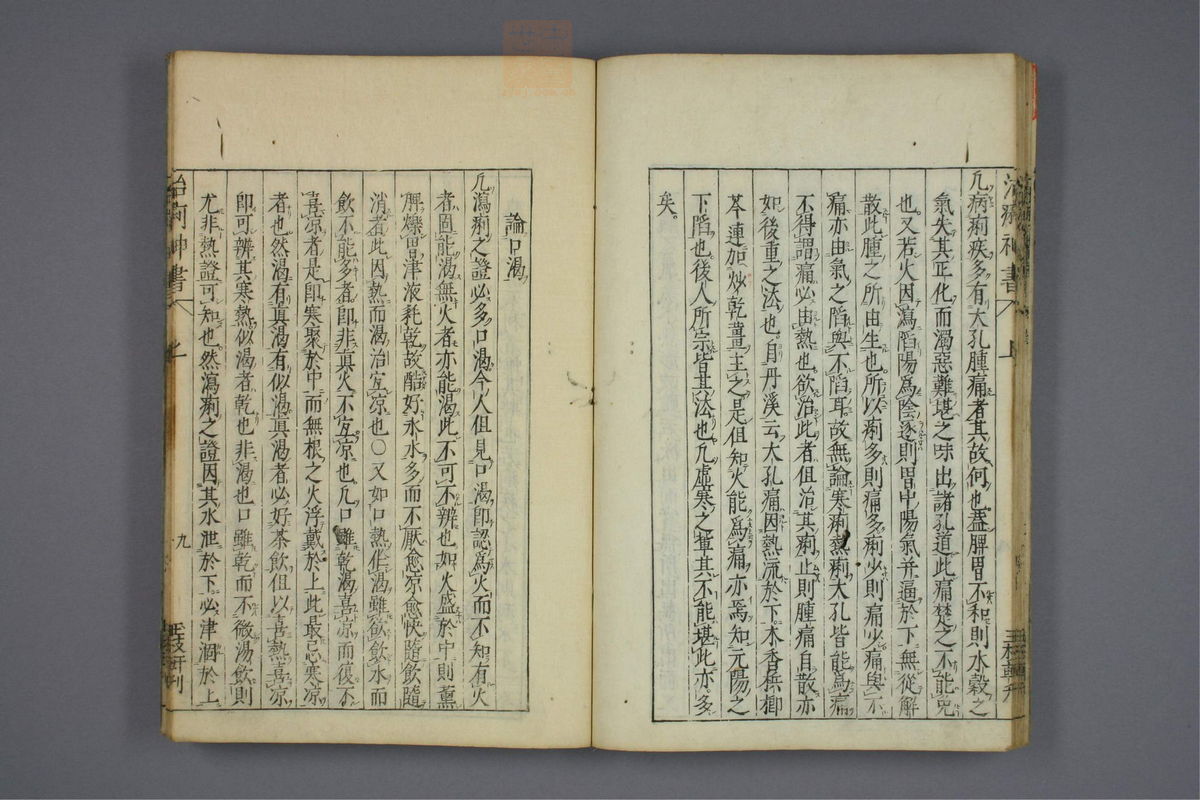 凡病痢疾多有大孔腫痛者其故何也蓋脾胃不和則水穀之
氣失其正化而濁惡難堪之味出諸孔道此痛楚之不能免
也又若火因瀉陷陽爲陰逐則胃中陽氣并逼於下無從解
散此腫之所由生也所以痢多則痛多痢少則痛少痛與不
痛亦由氣之陷與不陷耳故無論寒痢熱痢大孔皆能爲痛
不得謂痛必由熱也欲治此者但治其痢止則腫痛自散亦
如後重之法也自丹溪云大孔痛因熱流於下木香梹榔
芩連加炒乾薑主之是但知火能爲痛亦焉知元陽之
下陷也後人所宗皆其法也凡虛寒之輩其不能堪此亦多
矣
治痢神書
上
論口渴
凡瀉痢之證必多口渴今人但見口渴即認爲火而不知有火
者固能渴無火者亦能渴此不可不辨也如火盛於中則薰
脾爍胃津液耗乾故酷好氷水多而不厭愈凉愈快隨飲隨
消者此因熱而渴治宜凉也〇又如口熱作渴雖欲飲水而
飲不能多者即非眞火不宜凉也凡口雖乾渴喜凉而復不
喜凉者是即寒聚於中而無根之火浮戴於上此最忌寒凉
者也然渴有眞渴有似渴眞渴者必好茶飲但以喜熱喜凉
即可辨其寒熱似渴者乾也非渴也口雖乾而不微湯飲則
尤非熱證可知也然瀉痢之證因其水泄於下必津涸於上
治痢神書
上
九